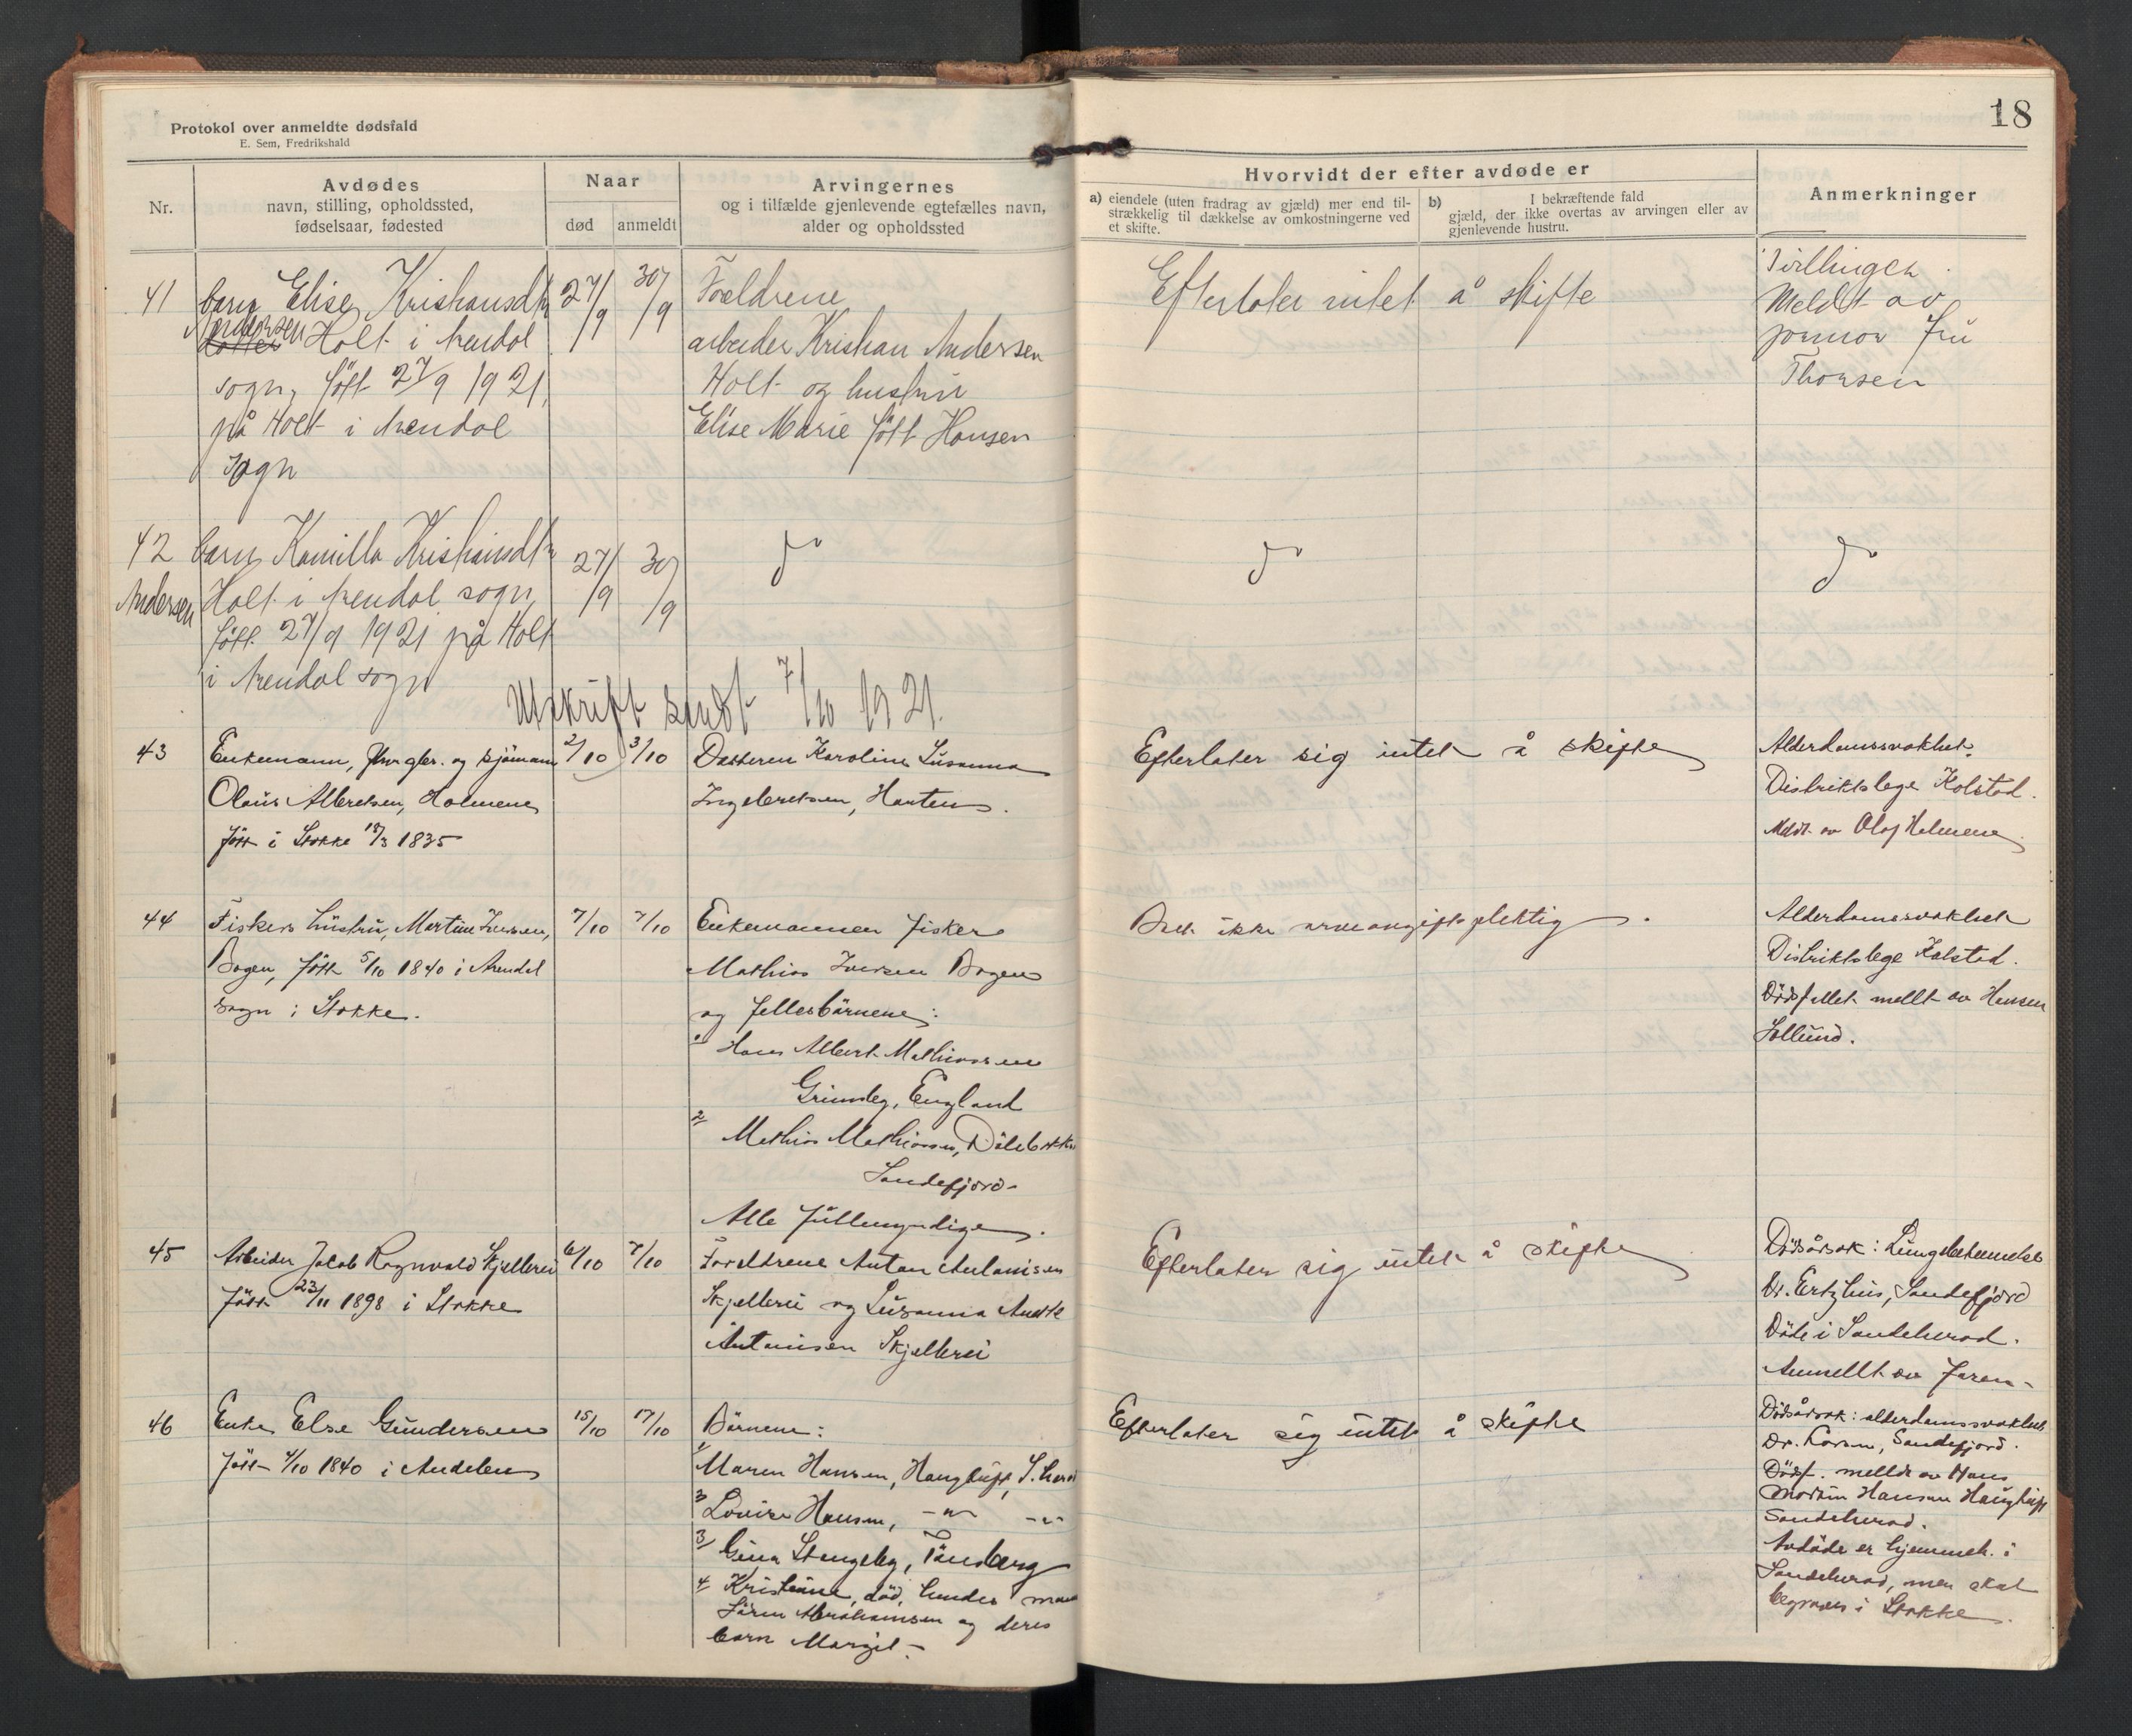 18
Protokol over anmeldte dødsfald
E. Sem, Fredrikshald
Nr.
Avdødes
navn, stilling, opholdssted,
fødselsaar, fødested
Naar
død
anmeldt
Arvingernes
og i tilfælde gjenlevende egtefælles navn,
alder og opholdssted
Hvorvidt der efter avdøde er
a) eiendele (uten fradrag av gjæld) mer end til-
strækkelig til dækkelse av omkostningerne ved
et skifte.
b) I bekræftende fald
gjæld, der ikke overtas av arvingen eller av
gjenlevende hustru.
Anmerkninger
41
barn Elise Kristiansdtr
Andersen Holt i Arendal
sogn, født 27/9 1921,
på Holt i Arendal
sogn
27/9
30/9
Foreldrene
arbeider Kristian Andersen
Holt og hustru
Elise Marie født Hansen
Efterlater intet å skifte
Tvillinger
Meldt av
jormor Fru
Thorsen
42
barn Kamilla Kristiansdtr
Andersen Holt i Arendal sogn
født 27/9 1921 på Holt
i Arendal sogn
27/9
30/9
do
do
do
Utskrift sendt 7/10 1921.
43
Enkemann, og sjømann
Olaus Albretsen, Holmene
født i Stokke 1835
2/10
3/10
Datteren Karoline Susanna
Ingebretsen, Horten.
Efterlater sig intet å skifte
Alderdomssvakhet.
Distriktslege Kolstad.
Meldt av Olaf Holmene.
44
Fiskers hustru, Martine Iversen,
Bogen, født 5/10 1840 i Arendal
sogn i Stokke.
7/10
7/10
Enkemannen fisker
Mathias Iversen Bogen
og fellesbarnene:
1/ Hans Albert Mathiassen
Grimsby, England
2/ Mathias Mathiassen,
Sandefjord
Alle fullmyndige.
Boet ikke arveavgiftspliktig.
Alderdomssvakhet
Distriktslege Kolstad.
Dødsfallet meldt av Hansen
Sollund.
45
Arbeider Jakob Ragnvald Skjellerei
født 23/11 1898 i Stokke
6/10
7/10
Foreldrene Anton Antonisen
Skjellerei og Susanna
Antonisen Skjellerei
Efterlater sig intet å skifte
Dødsårsak: Lungebetennelse
Dr. Sandefjord
Døde i Sandeherad.
Anmeldt av Faren
46
Enke Else Gundersen
født 4/10 1840 i Andebu
15/10
17/10
Børnene:
1/ Maren Hansen, S.herad
3 Lovise Hansen, -"- -"-
3/ Gina Stengsby, Tønsberg
4/ Kristine, død, hendes mann
Søren Abrahamsen og deres
barn Margit.
Efterlater sig intet å skifte
Dødsårsak: alderdomssvakhet
Dr. Sandefjord.
Dødsf. meldt av Hans
Martin Hansen
Sandeherad.
Avdøde er hjemmeh. i
Sandeherad, men skal
begraves i Stokke.